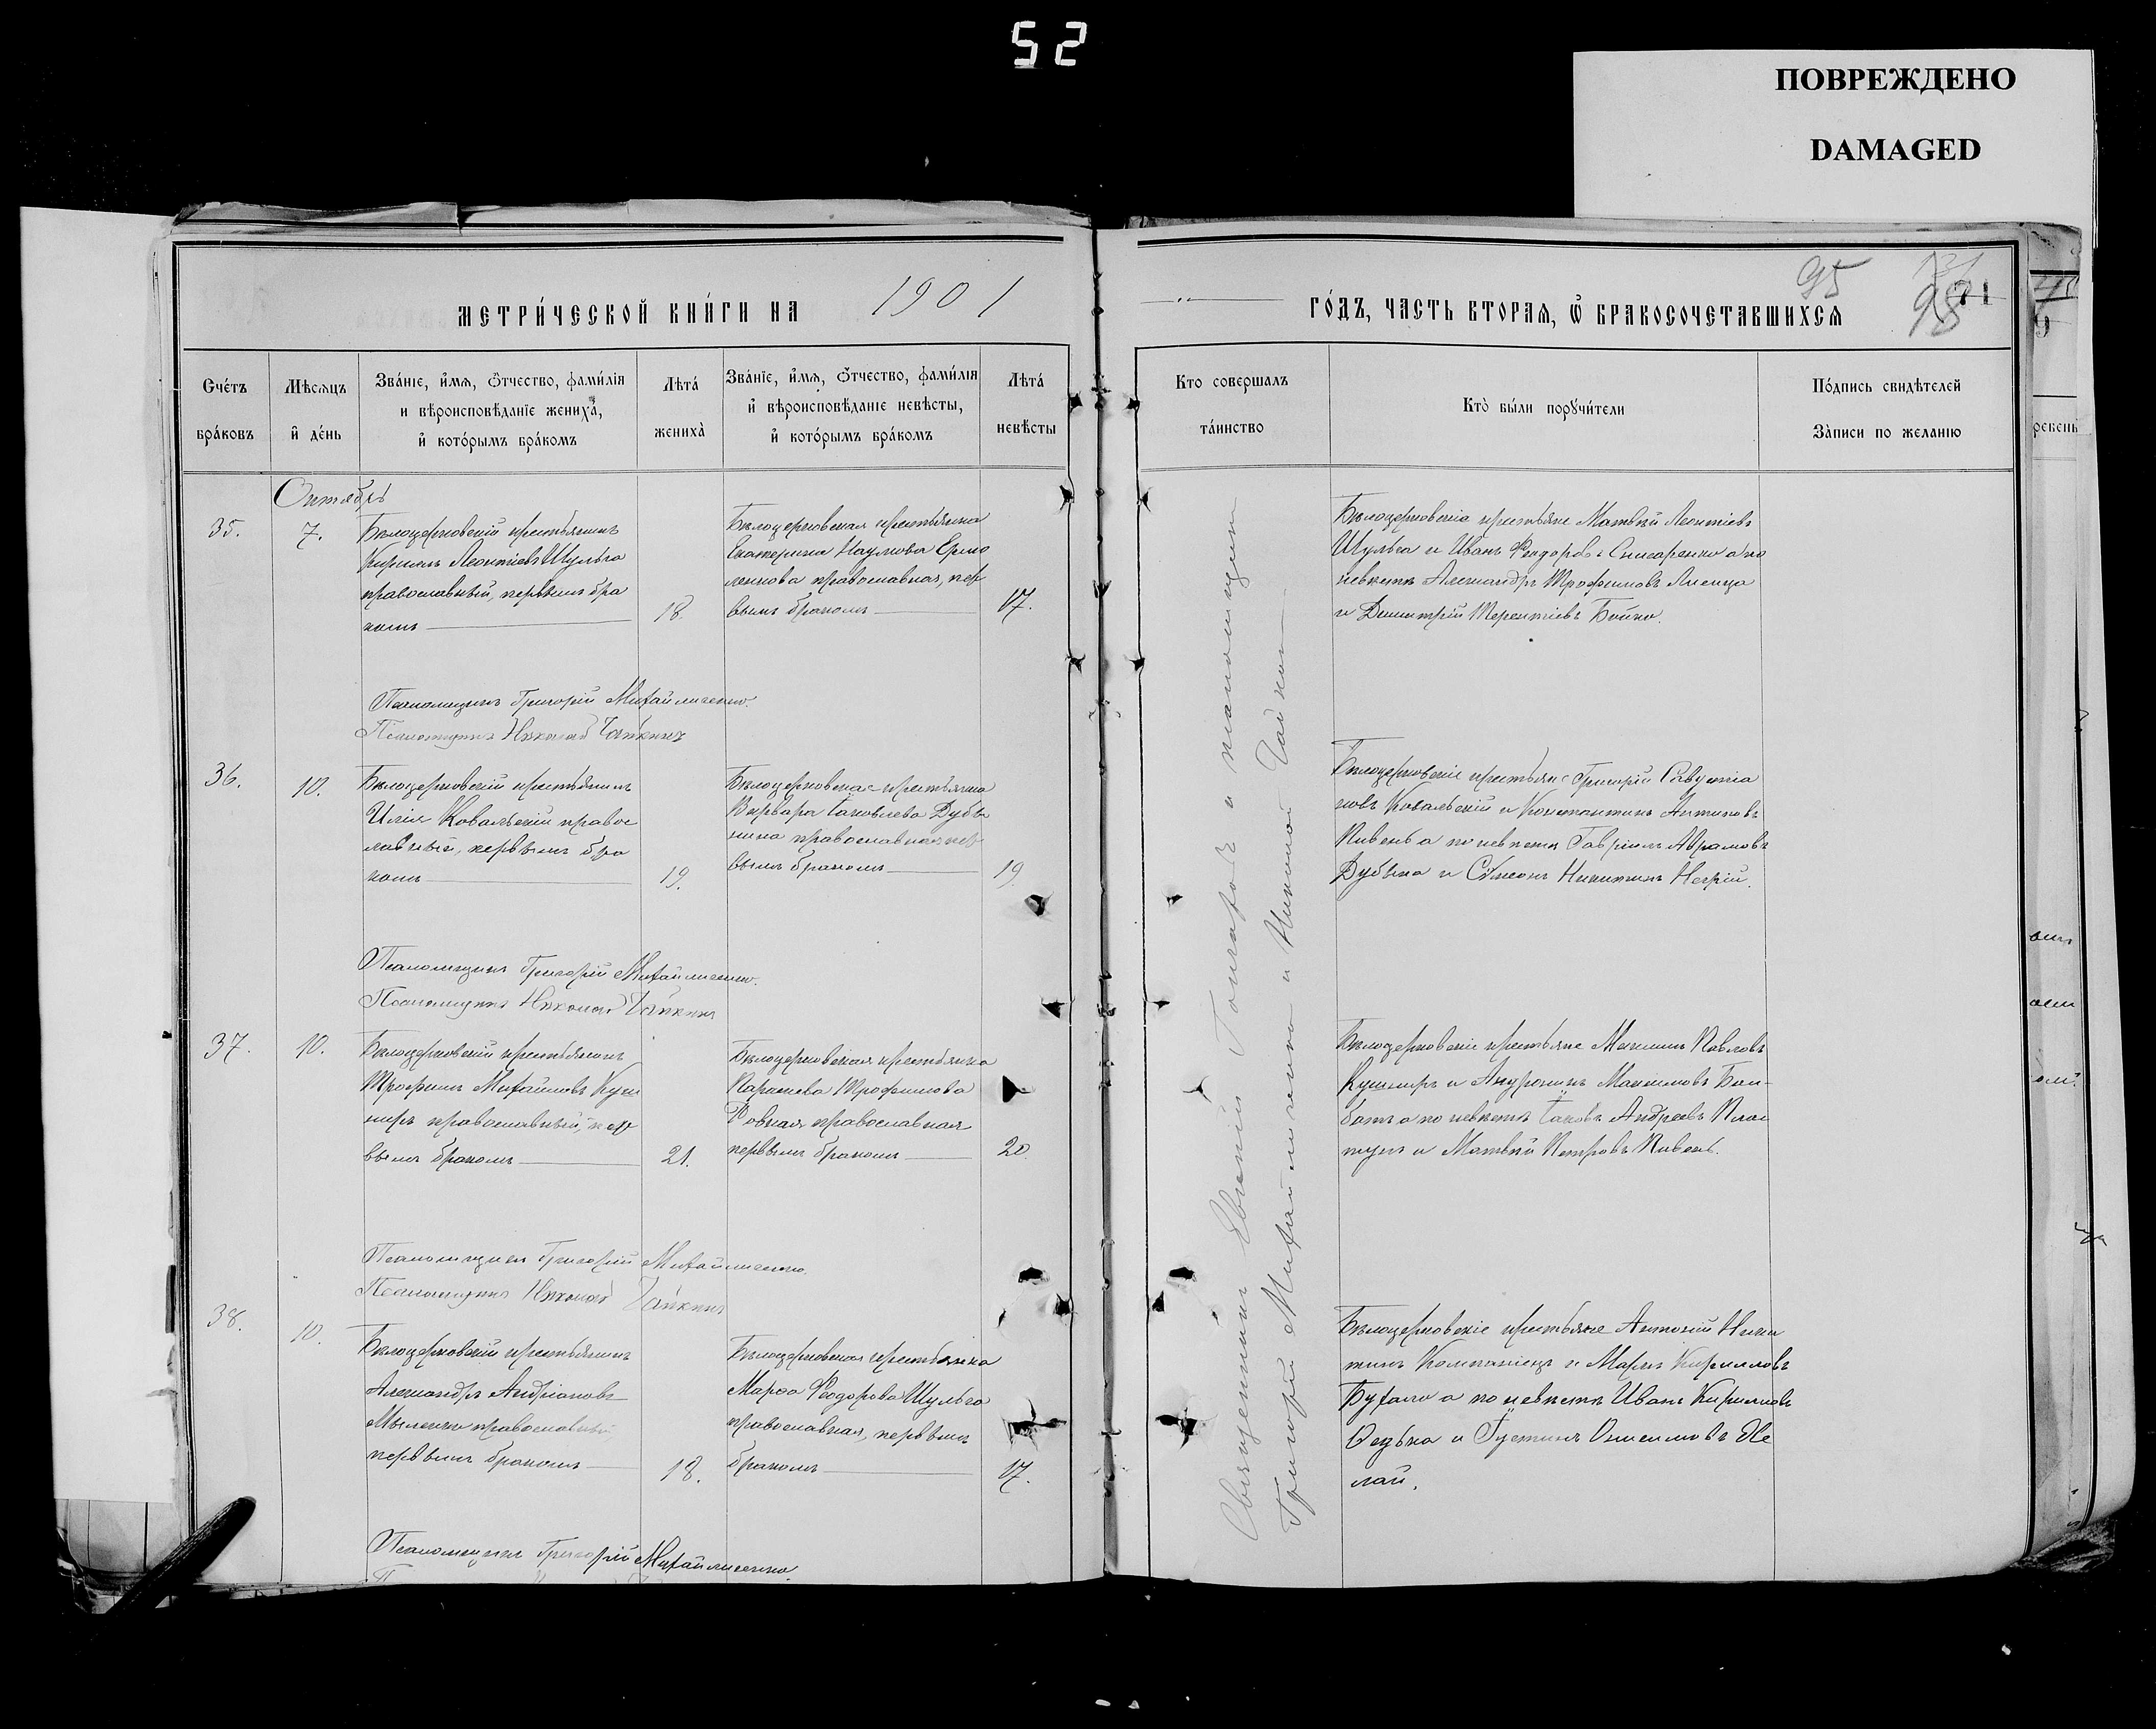 52
ПОВРЕЖДЕНО
DAMAGED
МЕТРИ́ЧЕСКОЙ КНИ́ГИ НА 1901
ГО́ДЪ, ЧАСТЬ ВТОРАѦ, Ѿ БРАКОСОЧЕТАВШИХСѦ
95
98
Счётъ бра́ковъ
Мѣсѧцъ и де́нь
Зва́нїе, и́мѧ, о́тчество, фами́лїѧ
и вѣроисповѣ́данїе жениха̀,
и́ кото́рымъ бра́комъ
Лѣта́ жениха̀
Зва́нїе, и́мѧ, о́тчество, фами́лїѧ
и́ вѣроисповѣ́данїе невѣ́сты,
и́ кото́рымъ бра́комъ
Лѣта́ невѣ́сты
Кто совершалъ та́инство
Кто̀ бы́ли пору́чи́тели
По́дпись свидѣ́телей
За̀писи по жела́нїю
Октябрь
35.
7.
Бѣлоцерковскій крестьянинъ
Кириллъ Леонтіевъ Шульга
православный, первымъ бра
комъ
18.
Бѣлоцерковская крестьянка
Екатерина Наумова Ермо
ленкова православная, пер
вымъ бракомъ
17.
Бѣлоцерковскіе крестьяне Матвѣй Леонтіевъ
Шульга и Иванъ Ѳеодоровъ а по
невѣстѣ Александръ Трофимовъ
и Димитрій Терентіевъ Бойко.
Псаломщикъ Григорій Михайличенко.
Псаломщикъ Николай Чайкинъ
36.
10.
Бѣлоцерковскій крестьянинъ
Илія Ковалѣскій правос
лавный, первымъ бра
комъ
19.
Бѣлоцерковская крестьянка
Варвара Іаковлева Дубѣ
нина православная пер
вымъ бракомъ
19.
Бѣлоцерковскіе крестьяне Григорій
новъ Ковалѣскій и Константинъ Антиповъ
Пивень а по невѣстѣ Гавріилъ Аврамовъ
и Сѵмеонъ Никитинъ
Псаломщикъ Григорій Михайличенко.
Псаломщикъ Николай Чайкинъ
37.
10.
Бѣлоцерковскій крестьянинъ
Трофимъ Михайловъ Куш
ниръ православный, пер
вымъ бракомъ
21.
Бѣлоцерковская крестьянка
Параскева Трофимова
Ровная православная
первымъ бракомъ
20.
Бѣлоцерковскіе крестьяне Максимъ Павловъ
Кушниръ и Андроникъ Максимовъ
а по невѣстѣ Іаковъ Андреевъ
и Матвѣй Петровъ Пивень.
Псаломщикъ Григорій Михайличенко.
Псаломщикъ Николай Чайкинъ
38.
10.
Бѣлоцерковскій крестьянинъ
Александръ Андріановъ
православный
первымъ бракомъ
18.
Бѣлоцерковская крестьянка
Марѳа Ѳеодорова Шульга
православная, первымъ
бракомъ
17.
Бѣлоцерковскіе крестьяне Антоній Ники
тинъ Компаніецъ и Маркъ Кирилловъ
а по невѣстѣ Иванъ Кирилловъ
и
лай.
Псаломщикъ Григорій Михайличенко.
Священникъ Евгеній съ псаломщиками
Григоріемъ Михайличенко и Николаемъ Чайкинымъ